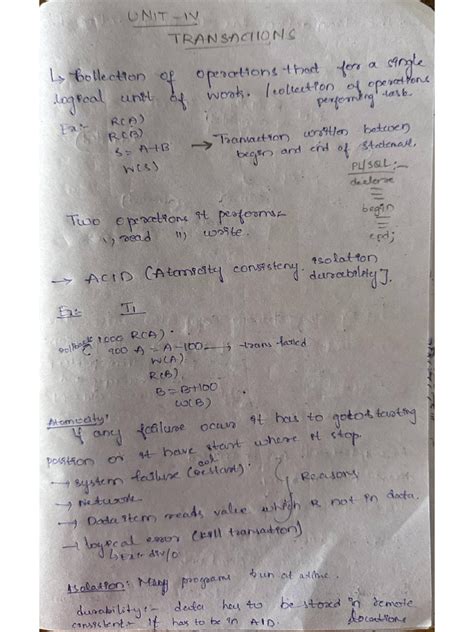 UNIT-IV
TRANSACTIONS
↳ Collection of operations that for a single
logical unit of work. (collection of operations
performing task.
Ex:- R(A)
R(B)
S = A+B
W(S)
→ Transaction written between
begin and end of statement.
PL/SQL:-
declare
begin
end;
Two operations it performs-
i, read ii, write.
→ ACID (Atomicity consisteny isolation
durability].
Ex:- T1
rollback 1000 R(A).
900 A = A-100 → transfered
W(A)
R(B)
B = B+100
W(B)
Atomicity:
If any failure occurs it has to goto starting
position or it have start where it stop.
→ system failure (restart)
→ Network
Reasons
→ Data item reads value which R not in data.
→ logical error (kill transaction)
↳ Ex:- div/0
Isolation: Many programs run at a time.
durability:- data has to be stored in remote
locations
consistent:- if has to be in AID.